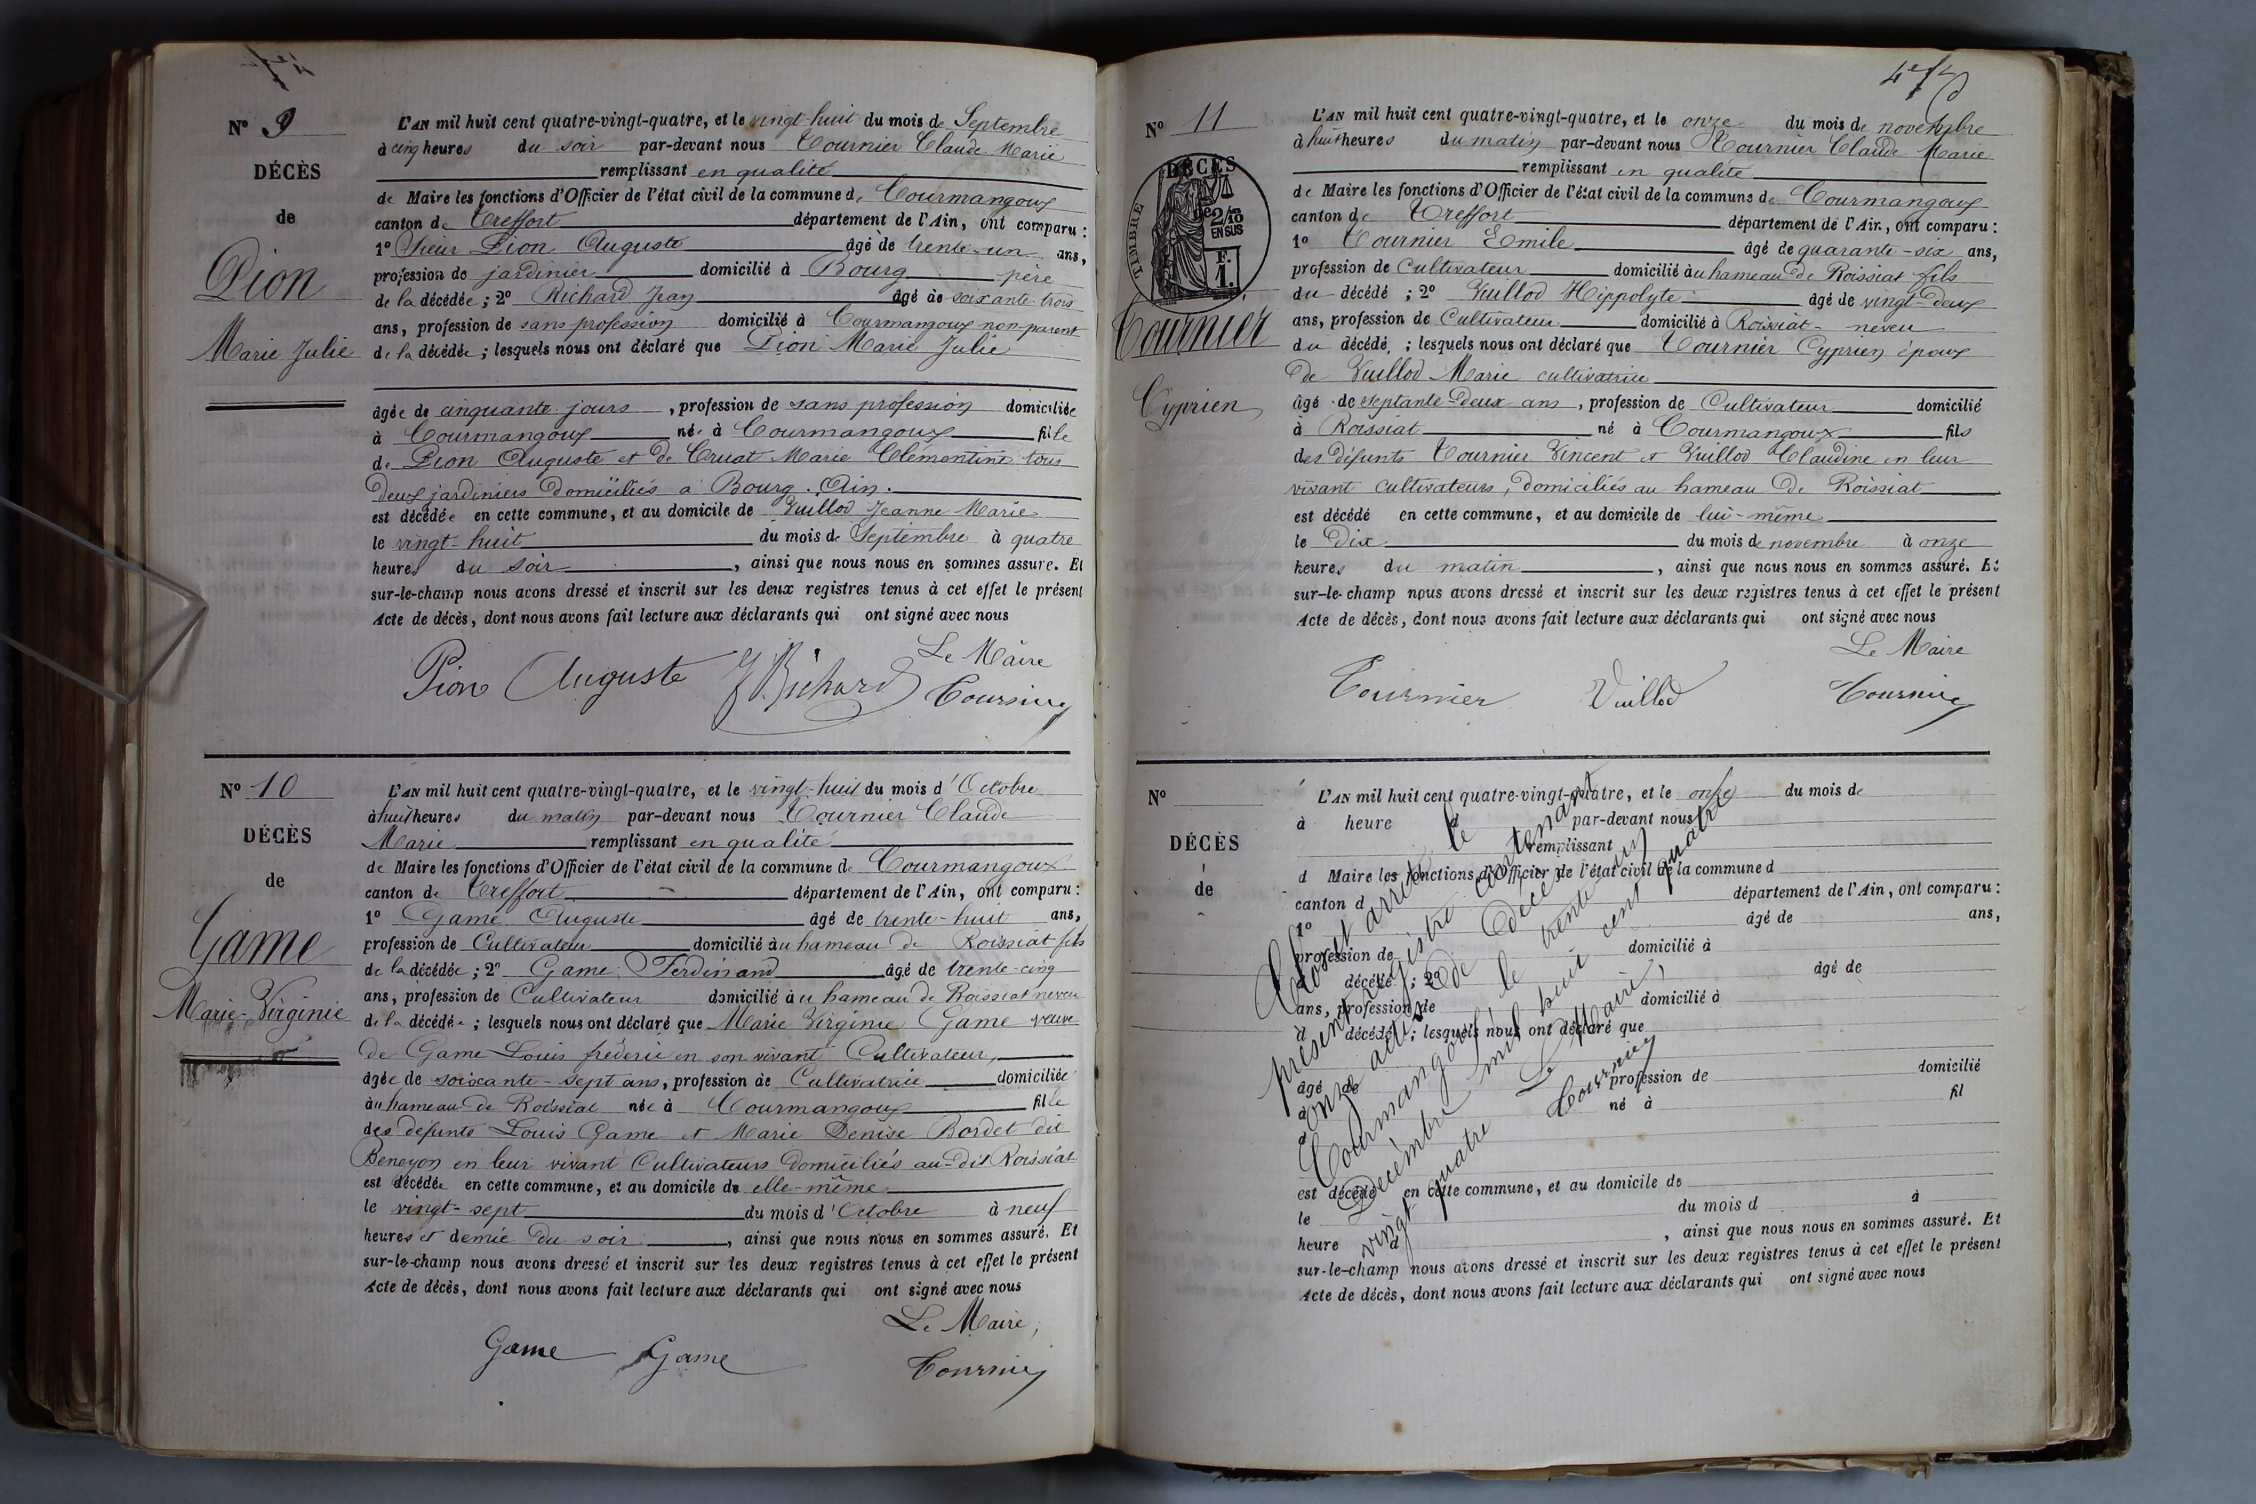 Nº 9
DÉCÈS
de
Pion
Marie Julie
L'AN mil huit cent quatre-vingt-quatre, et le vingt-huit du mois de Septembre
à cinq heures du soir par-devant nous Tournier Claude Marie
remplissant en qualité
de Maire les fonctions d'Officier de l'état civil de la commune de Courmangoux
canton de Treffort département de l'Ain, ont comparu :
1º Sieur Pion Auguste âgé de trente-un ans,
profession de jardinier domicilié à Bourg père
de la décédée ; 2º Richard Jean âgé de soixante trois
ans, profession de sans profession domicilié à Courmangoux non parent
de la décédée ; lesquels nous ont déclaré que Pion Marie Julie
âgée de cinquante jours, profession de sans profession domiciliée
à Courmangoux née à Courmangoux fille
de Pion Auguste et de Cruat Marie Clémentine tous
deux jardiniers domiciliés à Bourg. Ain.
est décédée en cette commune, et au domicile de Vuillod Jeanne Marie
le vingt-huit du mois de Septembre à quatre
heures du soir, ainsi que nous nous en sommes assuré. Et
sur-le-champ nous avons dressé et inscrit sur les deux registres tenus à cet effet le présent
Acte de décès, dont nous avons fait lecture aux déclarants qui ont signé avec nous
Le Maire
Pion Auguste J Richard Tournier
Nº 10
DÉCÈS
de
Game
Marie-Virginie
L'AN mil huit cent quatre-vingt-quatre, et le vingt-huit du mois d'Octobre
à huit heures du matin par-devant nous Tournier Claude
Marie remplissant en qualité
de Maire les fonctions d'Officier de l'état civil de la commune de Courmangoux
canton de Treffort département de l'Ain, ont comparu :
1º Game Auguste âgé de trente-huit ans,
profession de Cultivateur domicilié au hameau de Roissiat fils
de la décédée ; 2º Game Ferdinand âgé de trente-cinq
ans, profession de Cultivateur domicilié au hameau de Roissiat neveu
de la décédée ; lesquels nous ont déclaré que Marie Virginie Game veuve
de Game Louis fréderic en son vivant Cultivateur,
âgée de soixante-sept ans, profession de Cultivatrice domiciliée
au hameau de Roissiat née à Courmangoux fille
des défunts Louis Game et Marie Denise Bordet dit
Beneyon en leur vivant Cultivateurs domiciliés au-dit Roissiat
est décédée en cette commune, et au domicile de elle-même
le vingt-sept du mois d'Octobre à neuf
heures et demie du soir, ainsi que nous nous en sommes assuré. Et
sur-le-champ nous avons dressé et inscrit sur les deux registres tenus à cet effet le présent
Acte de décès, dont nous avons fait lecture aux déclarants qui ont signé avec nous
Le Maire,
Game Game Tournier
Nº 11
DÉCÈS
TIMBRE
de 2/10 EN SUS
F. 1.
Tournier
Cyprien
L'AN mil huit cent quatre-vingt-quatre, et le onze du mois de novembre
à huit heures du matin par-devant nous Tournier Claude Marie
remplissant en qualité
de Maire les fonctions d'Officier de l'état civil de la commune de Courmangoux
canton de Treffort département de l'Ain, ont comparu :
1º Tournier Emile âgé de quarante-six ans,
profession de Cultivateur domicilié au hameau de Roissiat fils
du décédé ; 2º Vuillod Hippolyte âgé de vingt-deux
ans, profession de Cultivateur domicilié à Roissiat - neveu
du décédé ; lesquels nous ont déclaré que Tournier Cyprien époux
de Vuillod Marie cultivatrice
âgé de septante-deux ans, profession de Cultivateur domicilié
à Roissiat né à Courmangoux fils
des défunts Tournier Vincent et Vuillod Claudine en leur
vivant cultivateurs, domiciliés au hameau de Roissiat
est décédé en cette commune, et au domicile de lui-même
le dix du mois de novembre à onze
heures du matin, ainsi que nous nous en sommes assuré. Et
sur-le-champ nous avons dressé et inscrit sur les deux registres tenus à cet effet le présent
Acte de décès, dont nous avons fait lecture aux déclarants qui ont signé avec nous
Le Maire
Tournier Vuillod Tournier
Nº
DÉCÈS
de
L'AN mil huit cent quatre-vingt-quatre, et le onze du mois de
à heure d par-devant nous
remplissant
d Maire les fonctions d'Officier de l'état civil de la commune d
canton d département de l'Ain, ont comparu :
1º âgé de ans,
profession de domicilié à
d décédé ; 2º âgé de
ans, profession de domicilié à
d décédé ; lesquels nous ont déclaré que
âgé de profession de domicilié
à né à fil
d
est décédé en cette commune, et au domicile de
le du mois d à
heure d, ainsi que nous nous en sommes assuré. Et
sur-le-champ nous avons dressé et inscrit sur les deux registres tenus à cet effet le présent
Acte de décès, dont nous avons fait lecture aux déclarants qui ont signé avec nous
Clos et arrêté le
présent registre contenant
onze actes de décès
Courmangoux le trente un
Décembre mil huit cent
vingt quatre quatre
Le Maire,
Tournier